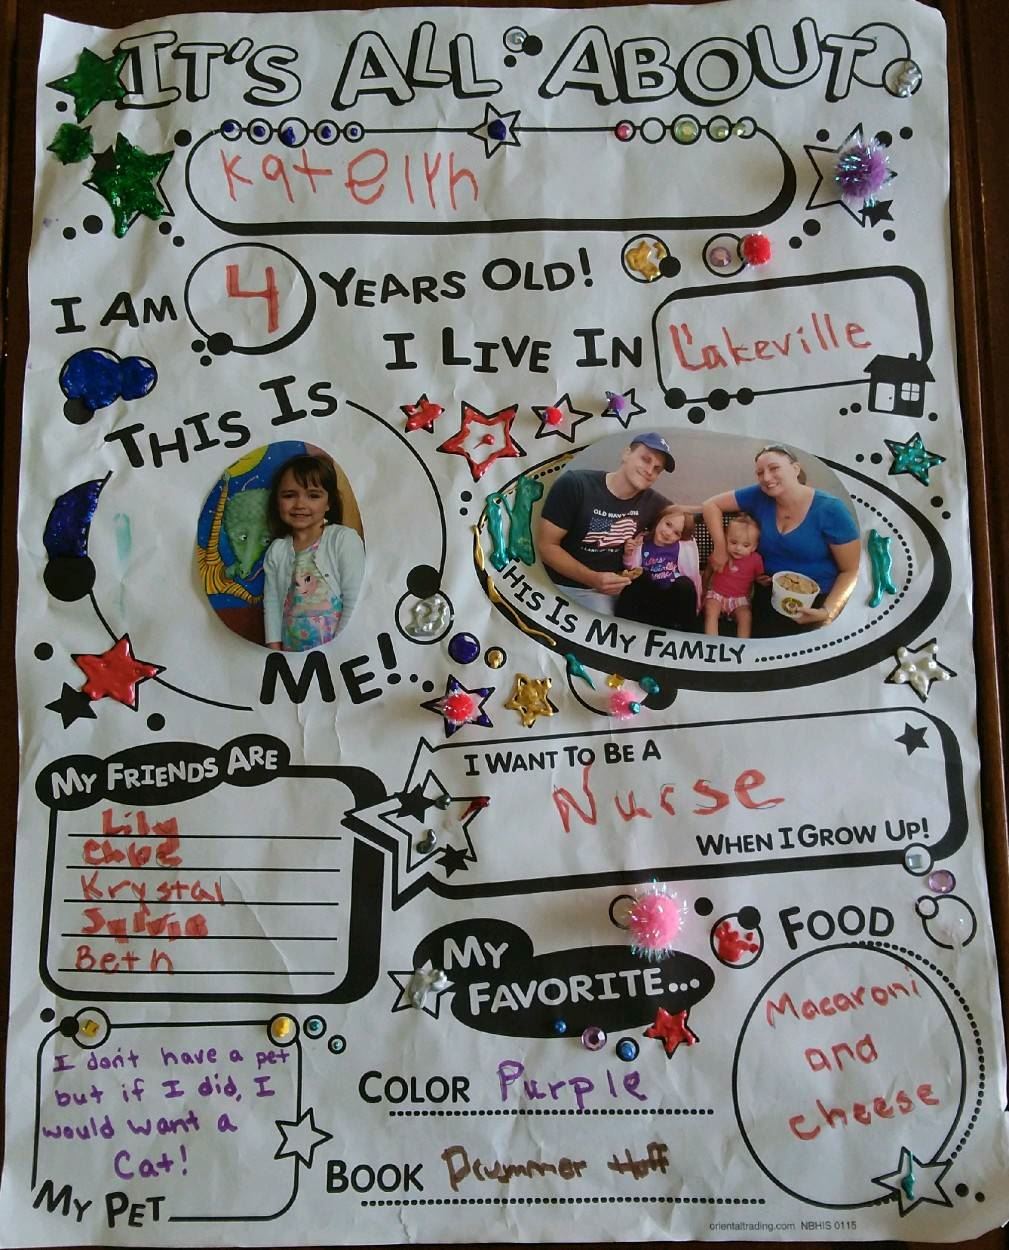 IT'S ALL ABOUT
Katelyn
I AM 4 YEARS OLD!
I LIVE IN Lakeville
THIS IS
ME!
OLD NAVY
THIS IS MY FAMILY
MY FRIENDS ARE
Lily
Chloe
Krystal
Sylvia
Beth
I WANT TO BE A
Nurse
WHEN I GROW UP!
MY
FAVORITE...
FOOD
Macaroni
and
cheese
COLOR Purple
BOOK Drummer Hoff
I don't have a pet
but if I did, I
would want a
Cat!
MY PET
orientaltrading.com NBHIS 0115